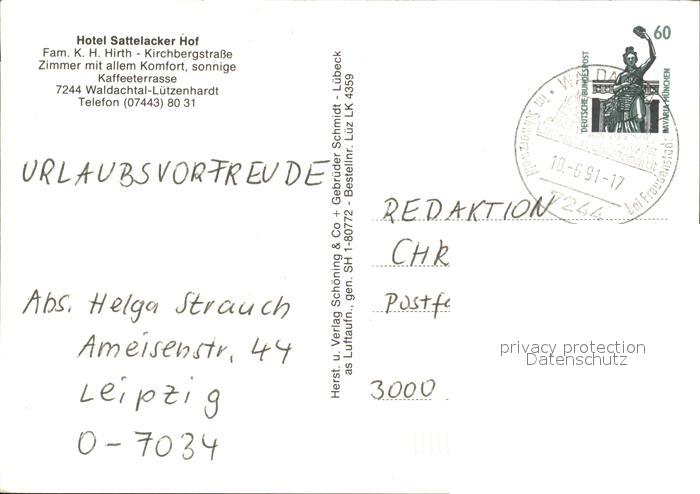 Hotel Sattelacker Hof
Fam. K. H. Hirth - Kirchbergstraße
Zimmer mit allem Komfort, sonnige
Kaffeeterrasse
7244 Waldachtal-Lützenhardt
Telefon (07443) 80 31
URLAUBSVORFREUDE
Abs. Helga Strauch
Ameisenstr. 44
Leipzig
O-7034
Herst. u. Verlag Schöning & Co + Gebrüder Schmidt - Lübeck
as Luftaufn., gen. SH 1-80772 - Bestellnr. Lüz LK 4359
60
DEUTSCHE BUNDESPOST
BAVARIA MÜNCHEN
10.-6.91.-17
7244
bei Freudenstadt
REDAKTION
CHR
Postfa
3000
privacy protection
Datenschutz